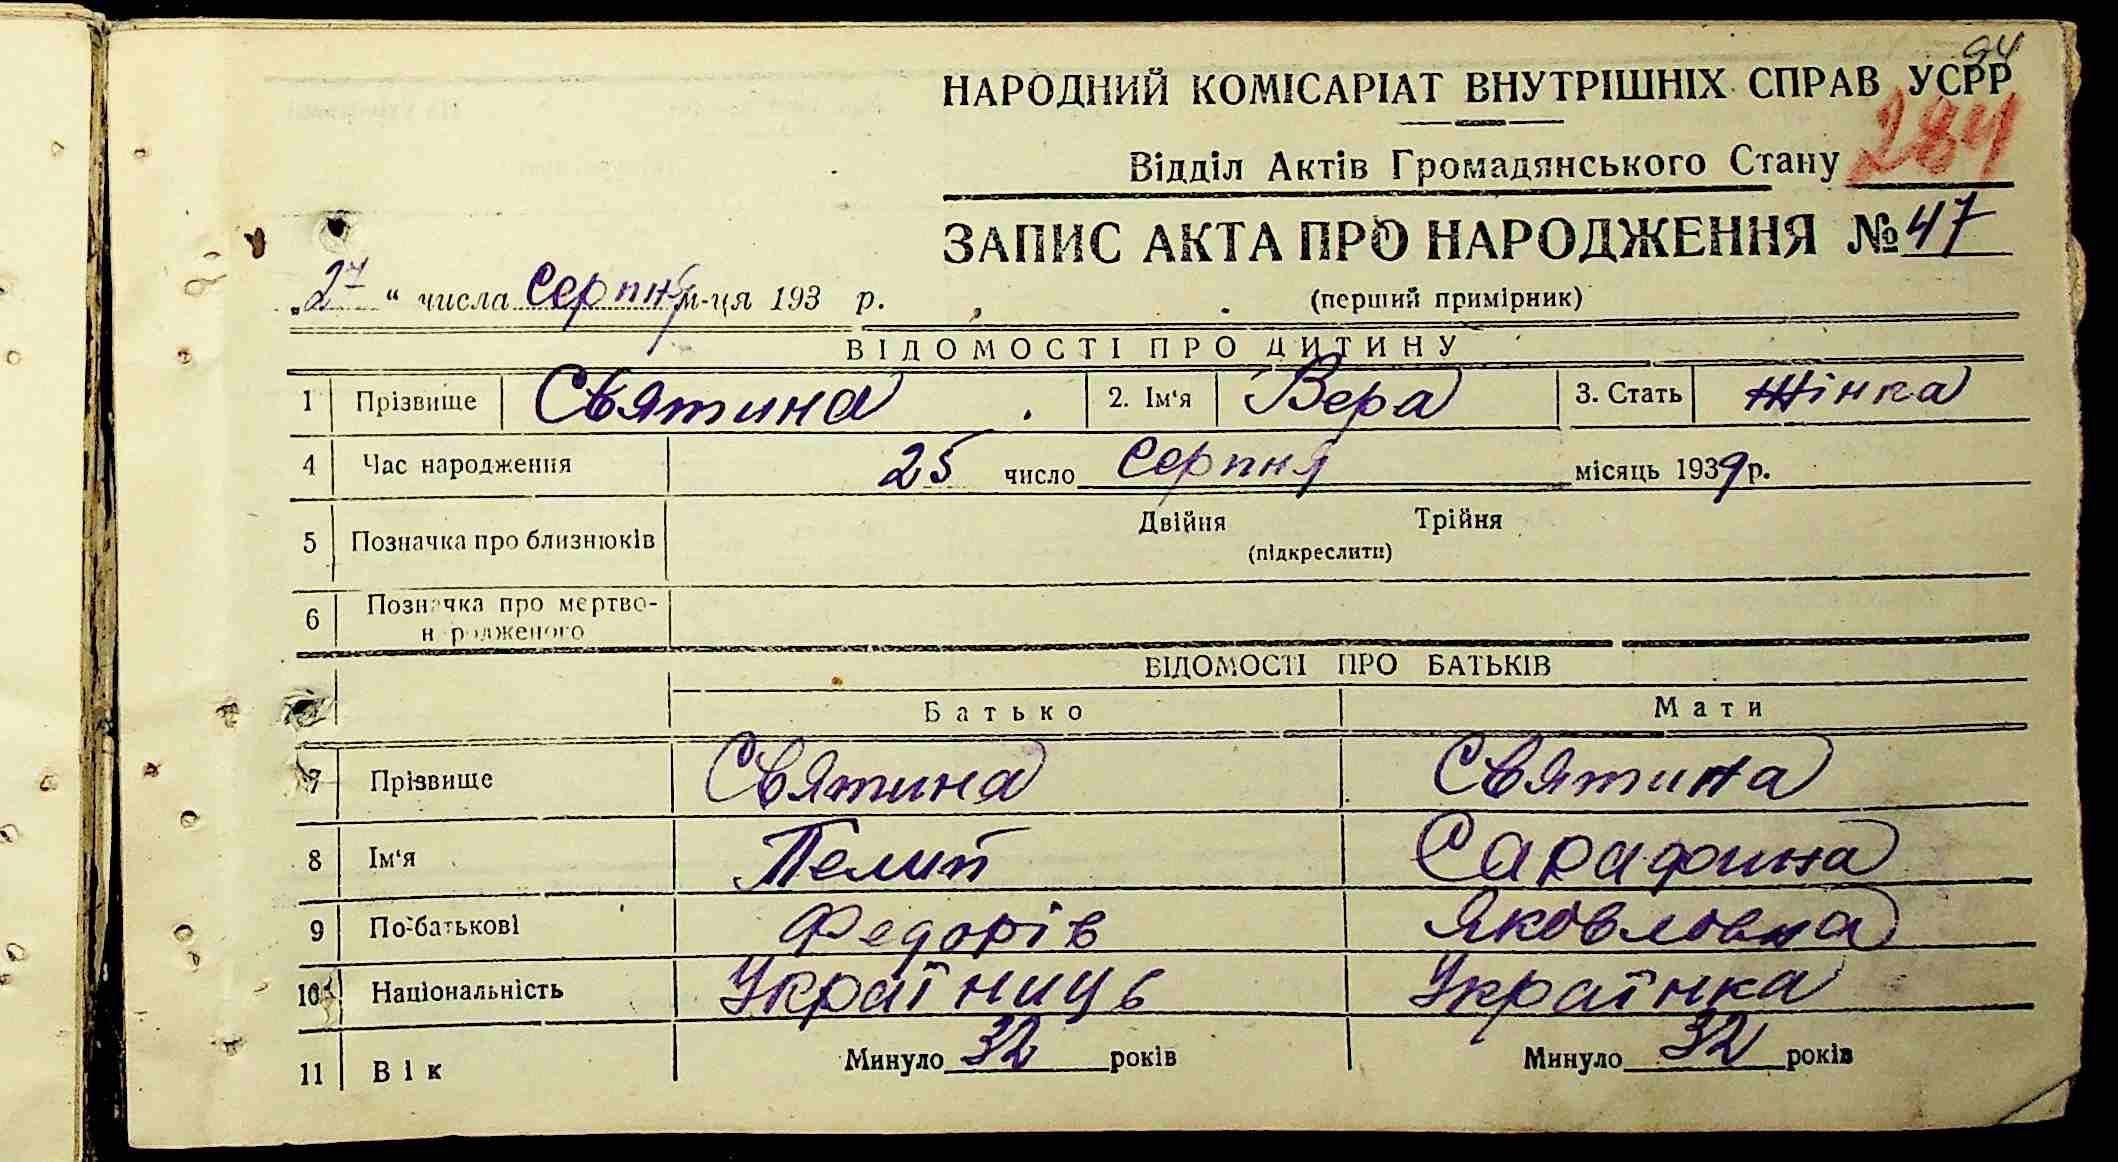 94
НАРОДНИЙ КОМІСАРІАТ ВНУТРІШНІХ СПРАВ УСРР
284
Відділ Актів Громадянського Стану
ЗАПИС АКТА ПРО НАРОДЖЕННЯ № 47
„27“ числа серпня м-ця 193 р. (перший примірник)
ВІДОМОСТІ ПРО ДИТИНУ
1 Прізвище Святина 2. Ім'я Вера 3. Стать Жінка
4 Час народження 25 число серпня місяць 1939 р.
5 Позначка про близнюків Двійня Трійня
(підкреслити)
6 Позначка про мертво-
н родженого
ВІДОМОСТІ ПРО БАТЬКІВ
Батько Мати
7 Прізвище Святина Святина
8 Ім'я Пелип Сарафина
9 По-батькові Федорів Яковловна
10 Національність Україниць Українка
11 Вік Минуло 32 років Минуло 32 років